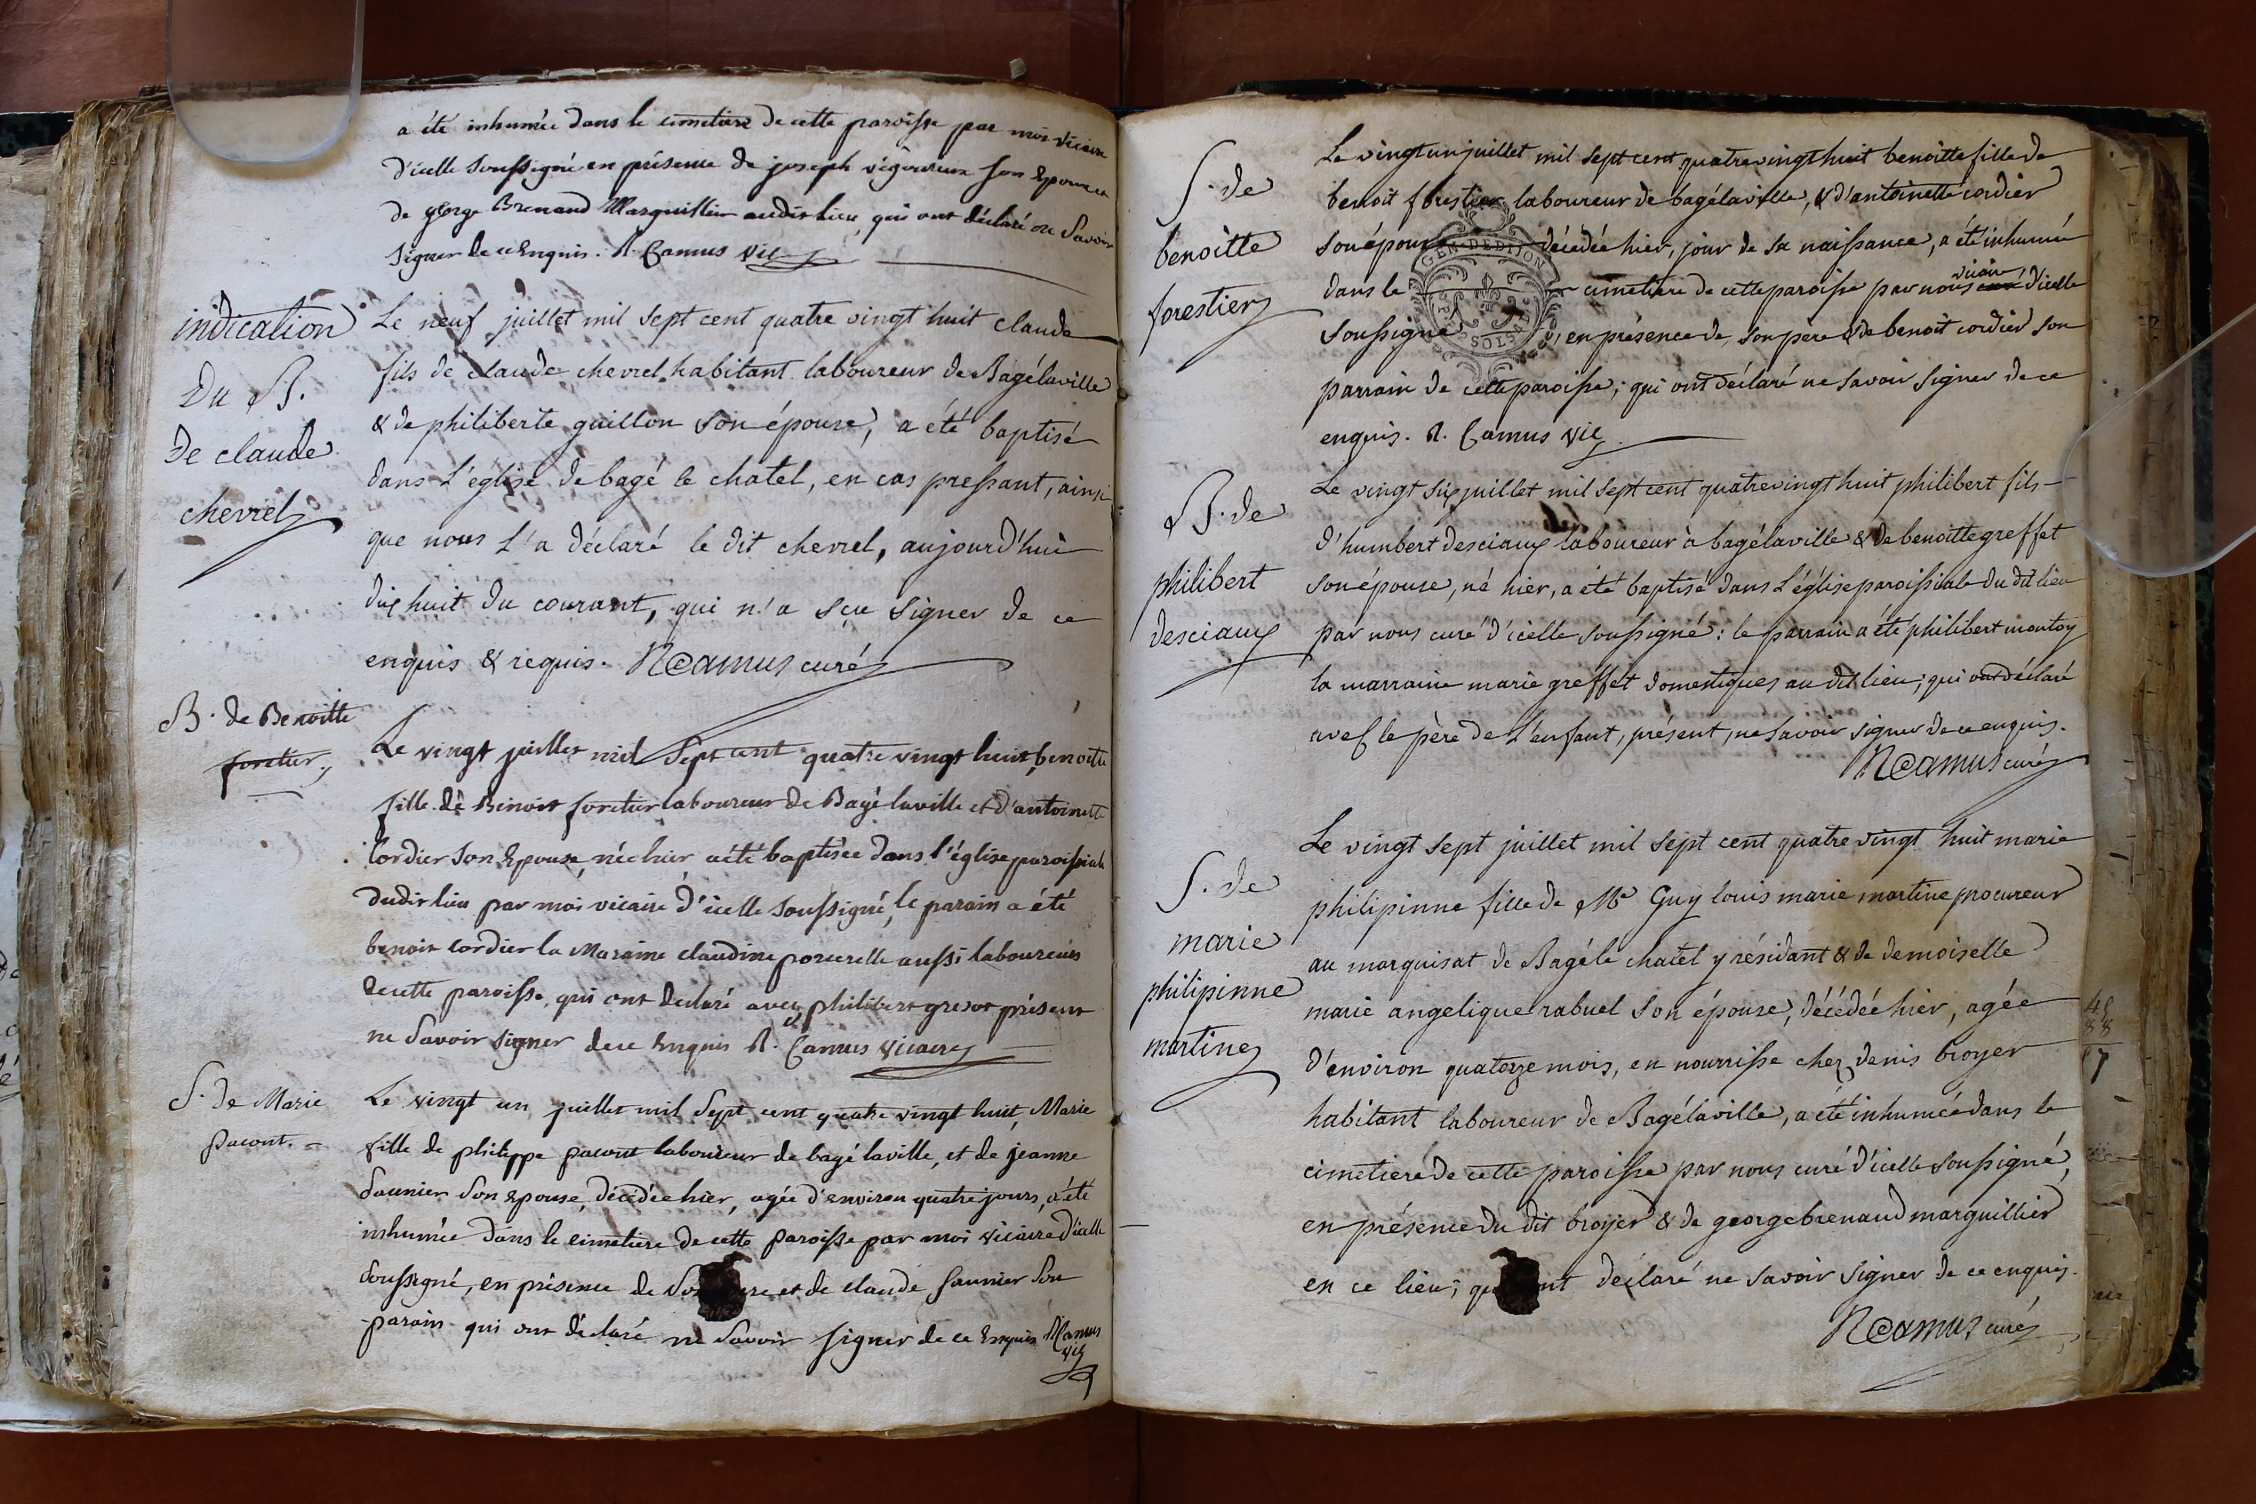 a été inhumée dans le cimetiere de cette paroisse par moi vicaire
d'icelle soussigné en présence de joseph vigoureux son Epoux et
de george Brenand Marguillier audit lieu, qui ont déclaré ne Savoir
signer de ce Enquis. R. Camus vic
indication
du B.
de claude
chevrel
Le neuf juillet mil sept cent quatre vingt huit claude
fils de claude chevrel habitant laboureur de Bagélaville
& de philiberte guillon son épouse, a été baptisé
dans L'église de bagé le chatel, en cas pressant, ainsi
que nous L'a déclaré le dit chevrel, aujourd'hui
dix huit du courant, qui n'a sçu signer de ce
enquis & requis. R Camus curé
B. de Benoitte
foretier
Le vingt juillet mil sept cent quatre vingt huit benoitte
fille de Benoit foretier laboureur de Bagé laville et d'antoinette
Cordier son Epouse, née hier a été baptisée dans l'église paroissiale
dudit lieu par moi vicaire d'icelle soussigné, le parain a été
benoit cordier la Maraine claudine porcerelle aussi laboureurs
de cette paroisse, qui ont declaré avec philibert gresot présent
ne savoir signer de ce Enquis R. Camus vicaire
S. de Marie
pacout.
Le vingt un juillet mil Sept cent quatre vingt huit, Marie
fille de philippe pacout laboureur de bagé laville, et de jeanne
Saunier son Epouse, décédée hier, agée d'environ quatre jours, a été
inhumée dans le cimetiere de cette paroisse par moi vicaire d'icelle
soussigné, en présence de et de claude Saunier son
parain qui ont déclaré ne Savoir signer de ce Enquis R Camus
vic
S. de
benoitte
forestier
Le vingtun juillet mil sept cent quatrevingthuit benoitte fille de
benoit forestier laboureur de bagélaville, & d'antoinette cordier
son épouse décédée hier, jour de sa naissance, a été inhumée
GEN. DE DIJON
2. SOLS
vicaire
dans le cimetiere de cette paroisse par nous curé d'icelle
soussigné, en présence de son père & de benoit cordier son
parrain de cette paroisse; qui ont déclaré ne savoir signer de ce
enquis. R. Camus vic
B. de
philibert
desciaux
Le vingt six juillet mil sept cent quatrevingt huit philibert fils
d'humbert desciaux laboureur à bagélaville & de benoitte greffet
son épouse, né hier, a été baptisé dans L'église paroissiale du dit lieu
par nous curé d'icelle soussigné: le parrain a été philibert montoy
la marraine marie greffet domestiques au dit lieu; qui ont déclaré
avec le père de L'enfant, présent, ne savoir signer de ce enquis.
R Camus curé
S. de
marie
philipinne
martine
Le vingt sept juillet mil sept cent quatre vingt huit marie
philipinne fille de Me Guy louis marie martine procureur
au marquisat de Bagé le chatel y résidant & de demoiselle
marie angelique rabuel son épouse, décédée hier, agée
d'environ quatorze mois, en nourrisse chez denis broyer
habitant laboureur de Bagélaville, a été inhumée dans le
cimetiere de cette paroisse par nous curé d'icelle soussigné,
en présence du dit broyer & de george brenaud marguillier
en ce lieu; qui ont déclaré ne savoir signer de ce enquis.
R Camus curé